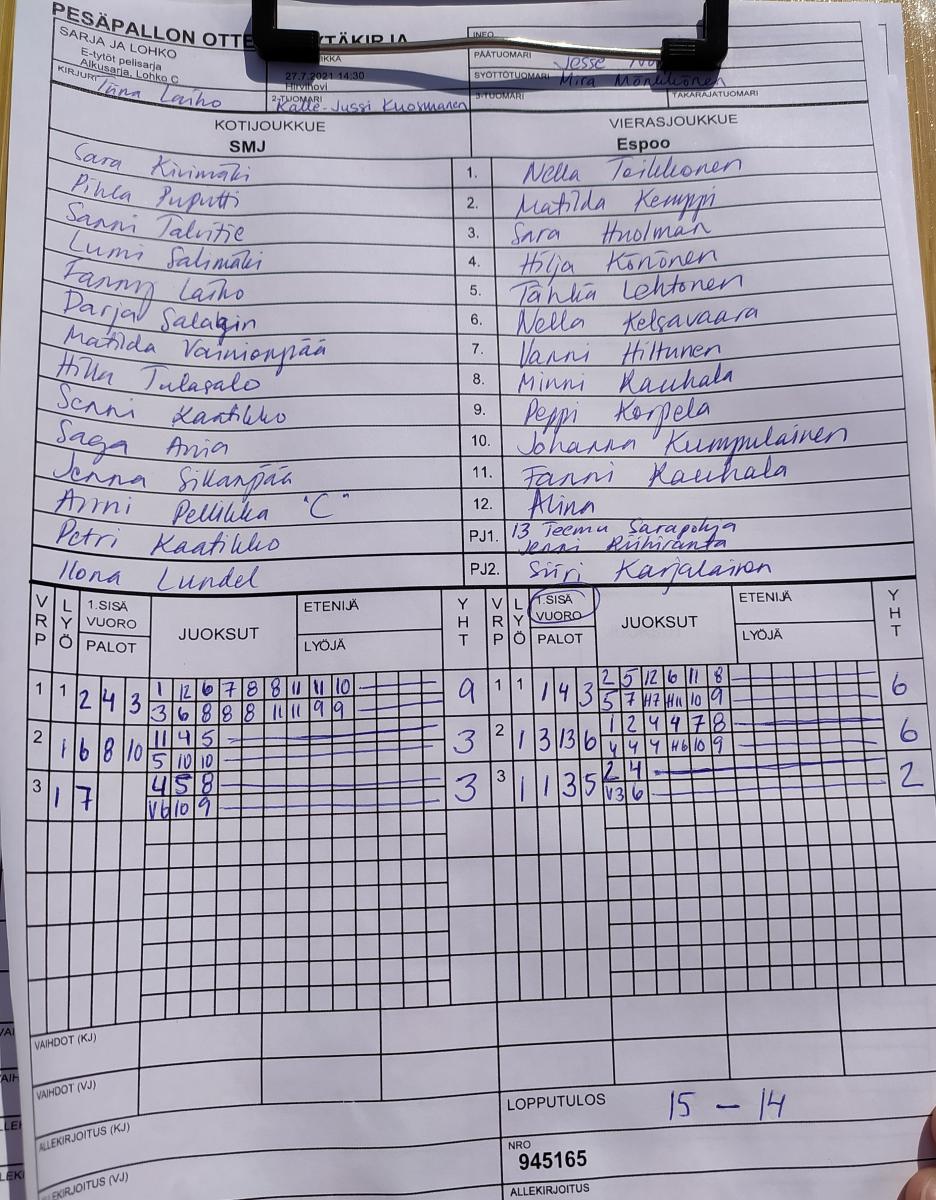 PESÄPALLON OTTE YTÄKIRJA
SARJA JA LOHKO
E-tytöt pelisarja
Alkusarja, Lohko C
27.7.2021 14:30
Hirvihovi
INFO
PÄÄTUOMARI Jesse
SYÖTTÖTUOMARI Mira Mönkkönen
KIRJURI Tiina Laiho
2-TUOMARI Kalle-Jussi Kuosmanen
3-TUOMARI
TAKARAJATUOMARI
KOTIJOUKKUE VIERASJOUKKUE
SMJ Espoo
Sara Kivimäki 1. Nella Toikkonen
Pihla Puputti 2. Matilda Kemppi
Sanni Talvitie 3. Sara Huolman
Lumi Salimäki 4. Hilja Könönen
Fanny Laiho 5. Lehtonen
Darja Salagin 6. Nella Kelsavaara
Matilda Vainionpää 7. Vanni Hiltunen
Hilla Tulasalo 8. Minni Rauhala
Senni Kaatikko 9. Peppi Korpela
Saga Ania 10. Johanna Kumpulainen
Jenna Sillanpää 11. Fanni Rauhala
Anni Pellikka "C" 12. Alina
Petri Kaatikko PJ1. 13 Teemu Sarapohja
Jenni Riihiranta
Ilona Lundel PJ2. Siiri Karjalainen
VRP LYÖ 1.SISÄ VUORO PALOT JUOKSUT ETENIJÄ LYÖJÄ YHT VRP LYÖ 1.SISÄ VUORO PALOT JUOKSUT ETENIJÄ LYÖJÄ YHT
1 1 2 4 3 1 12 6 7 8 8 11 11 10 9 1 1 1 4 3 2 5 12 6 11 8 6
3 6 8 8 8 11 11 9 9 5 7 H7 H11 10 9
2 1 6 8 10 11 4 5 3 2 1 3 13 6 1 2 4 4 7 8 6
5 10 10 4 4 4 H6 10 9
3 1 7 4 5 8 3 3 1 1 3 5 2 4 2
V6 10 9 V3 6
VAIHDOT (KJ)
VAIHDOT (VJ)
ALLEKIRJOITUS (KJ)
LOPPUTULOS 15 - 14
NRO
945165
ALLEKIRJOITUS (VJ)
ALLEKIRJOITUS